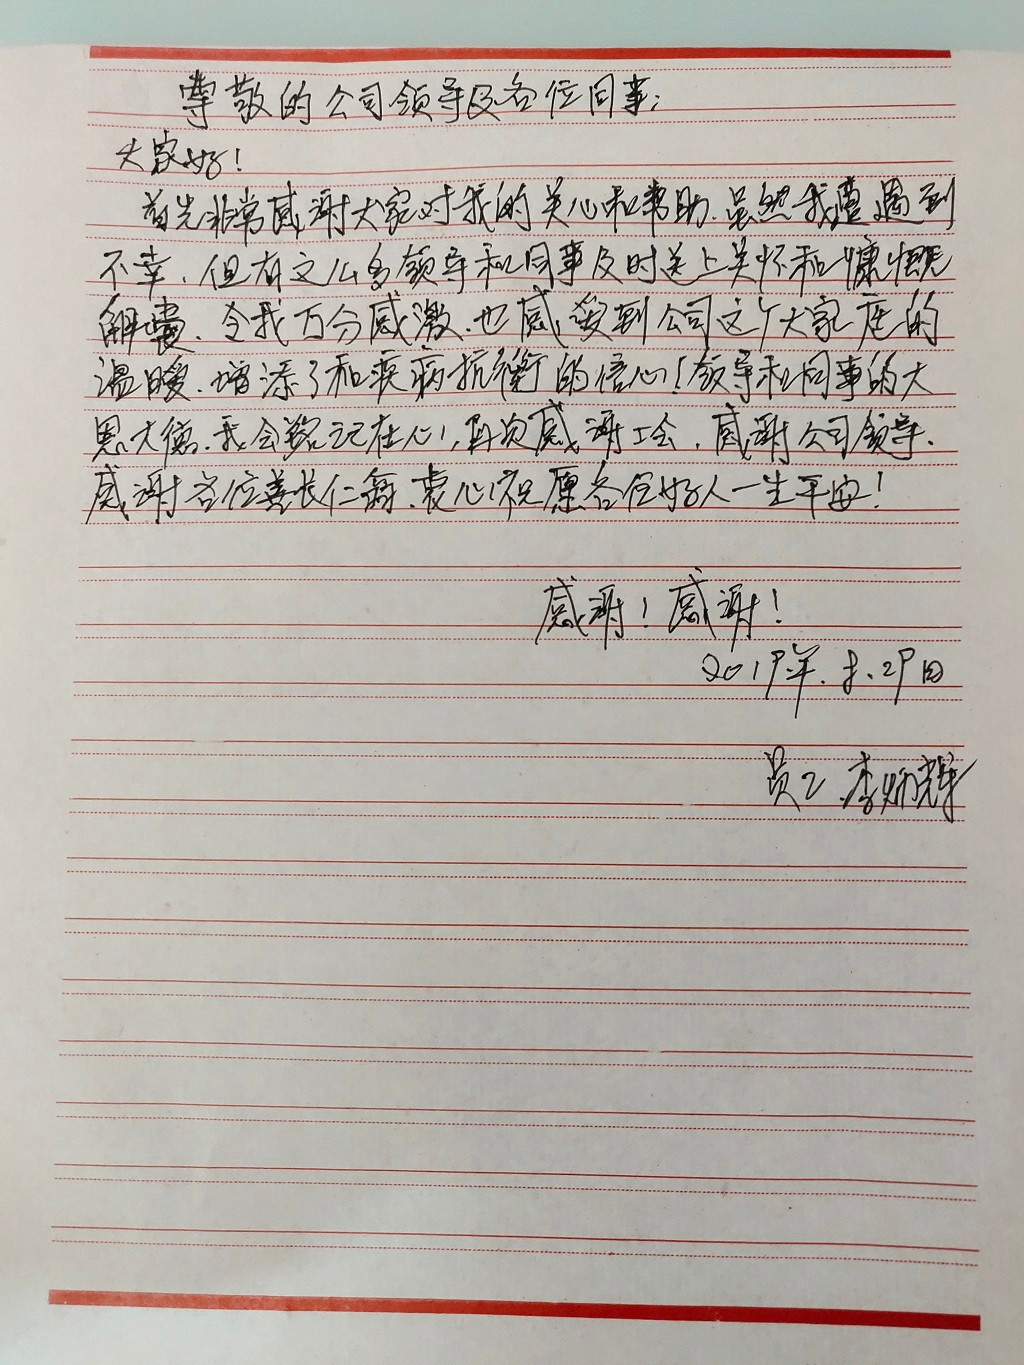 尊敬的公司领导及各位同事:
大家好!
首先非常感谢大家对我的关心和帮助.虽然我遭遇到
不幸.但有这么多领导和同事及时送上关怀和慷慨
解囊.令我万分感激.也感受到公司这个大家庭的
温暖.增添了和疾病抗衡的信心!领导和同事的大
恩大德.我会铭记在心,再次感谢工会.感谢公司领导.
感谢各位善长仁翁.衷心祝愿各位好人一生平安!
感谢!感谢!
2019年.8.29日
员工 李炳辉